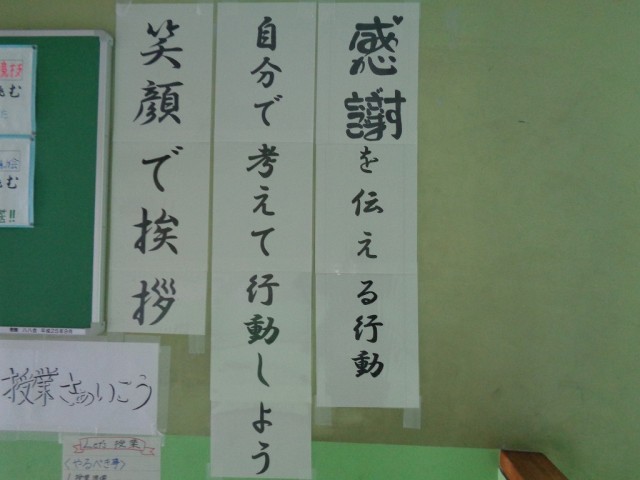 感謝を伝える行動
自分で考えて行動しよう
笑顔で挨拶
授業さいこう
Let's 授業
<やるべき事>